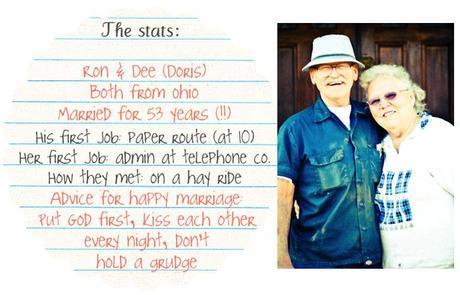 The stats:
Ron & Dee (Doris)
Both from ohio
Married for 53 years (!!)
His first job: paper route (at 10)
Her first job: admin at telephone co.
How they met: on a hay ride
Advice for happy marriage:
Put GOD first, kiss each other
every night, Don't
hold a grudge